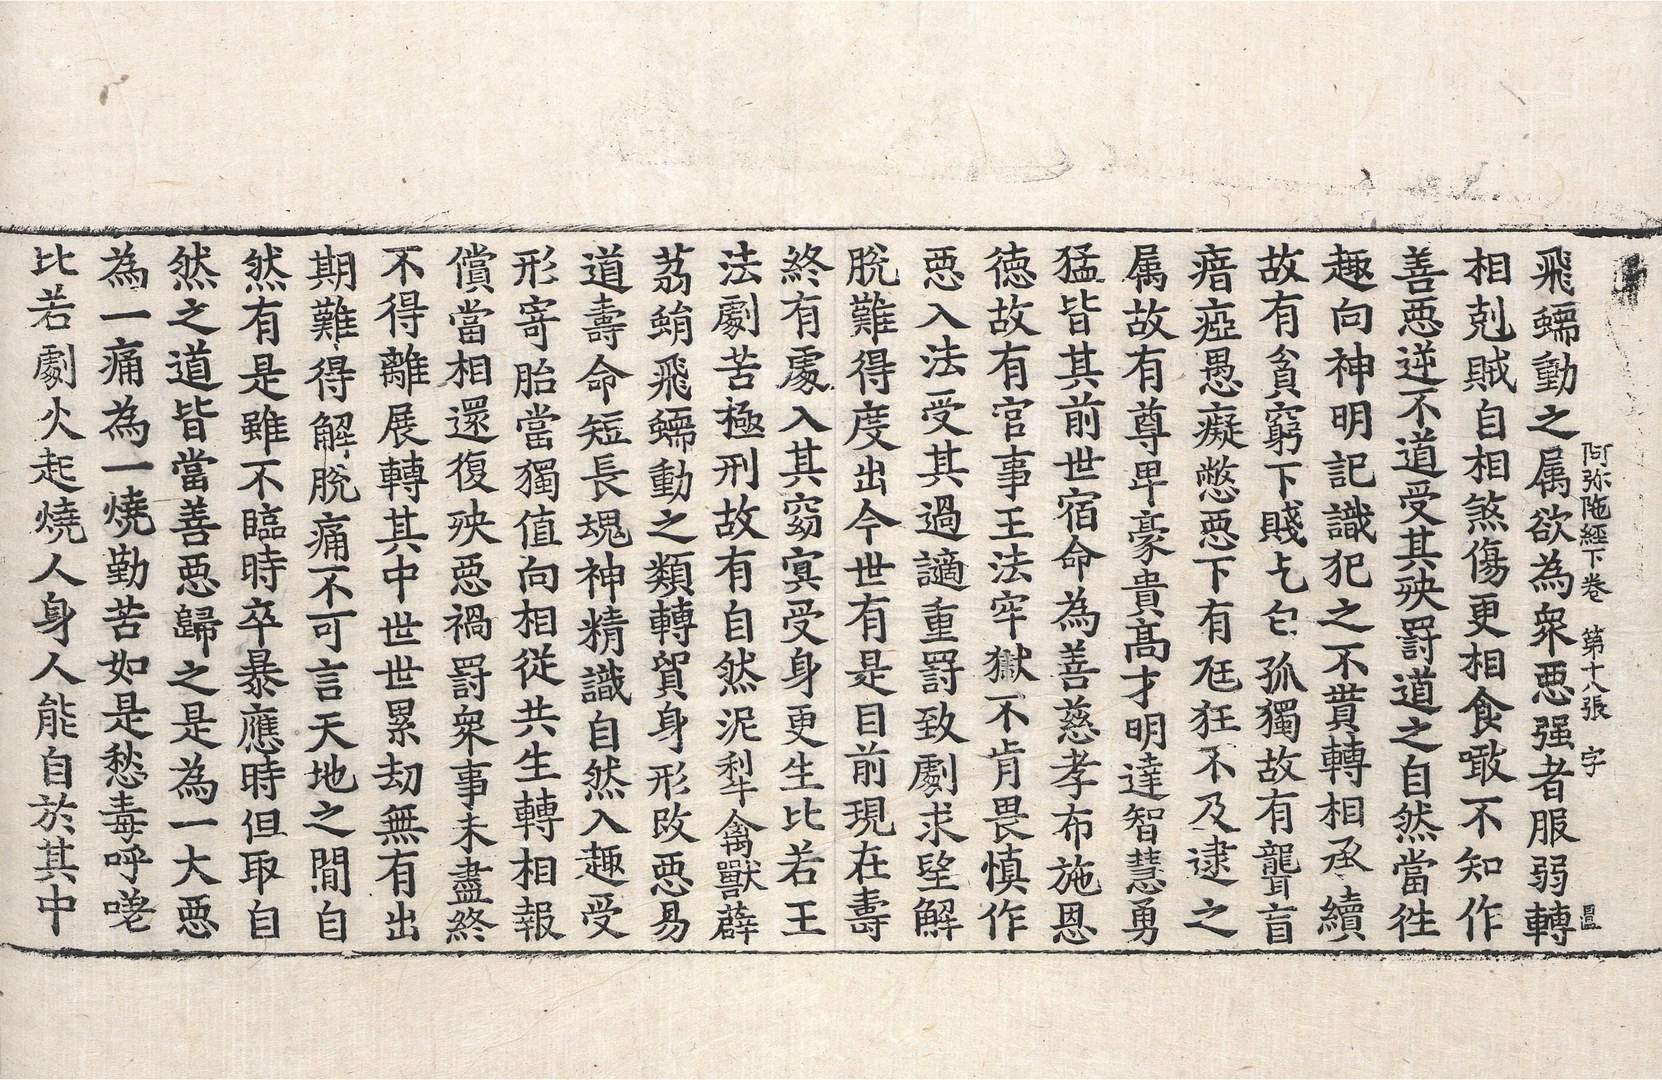 阿弥陁經下卷 第十八張 字 畐
飛蠕動之属欲為衆惡强者服弱轉
相剋賊自相煞傷更相食噉不知作
善惡逆不道受其殃罸道之自然當徃
趣向神明記識犯之不貰轉相承續
故有貧窮下賤乞匄孤獨故有聾盲
瘖瘂愚癡憋惡下有尪狂不及逮之
属故有尊卑豪貴高才明達智慧勇
猛皆其前世宿命為善慈孝布施恩
徳故有官事王法牢獄不肯畏慎作
惡入法受其過讁重罸致劇求望解
脫難得度出今世有是目前現在壽
終有處入其窈㝠受身更生比若王
法劇苦極刑故有自然泥犁禽獸薜
荔蜎飛蠕動之類轉貿身形改惡易
道壽命短長塊神精識自然入趣受
形寄胎當獨值向相從共生轉相報
償當相還復殃惡禍罸衆事未盡終
不得離展轉其中世世累劫無有出
期難得解脫痛不可言天地之閒自
然有是雖不臨時卒暴應時但取自
然之道皆當善惡歸之是為一大惡
為一痛為一燒勤苦如是愁毒呼嗟
比若劇火起燒人身人能自於其中